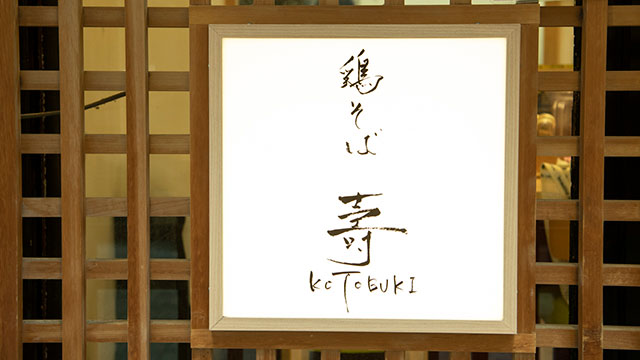 鶏そば
寿
KOTOBUKI